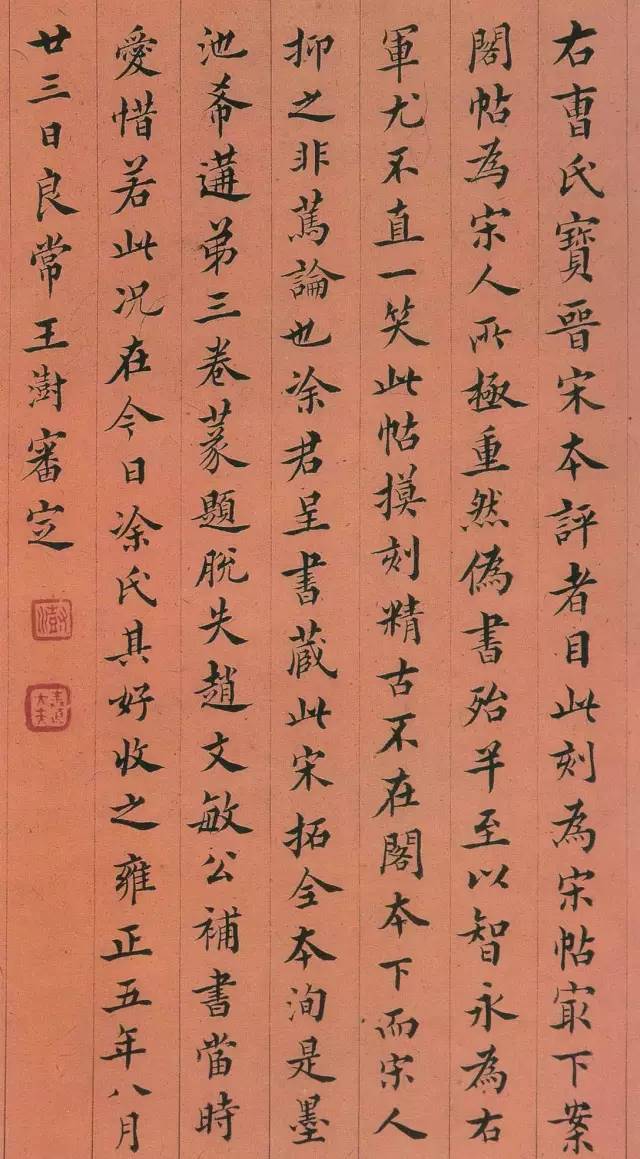 右曹氏寶晉宋本評者目此刻為宋帖㝡下案
閣帖為宋人所極重然偽書殆半至以智永為右
軍尤不直一笑此帖摸刻精古不在閣本下而宋人
抑之非篤論也凃君呈書藏此宋拓全本洵是墨
池希遘弟三卷篆題脫失趙文敏公補書當時
愛惜若此况在今日凃氏其好收之雍正五年八月
廿三日良常王澍審定
澍